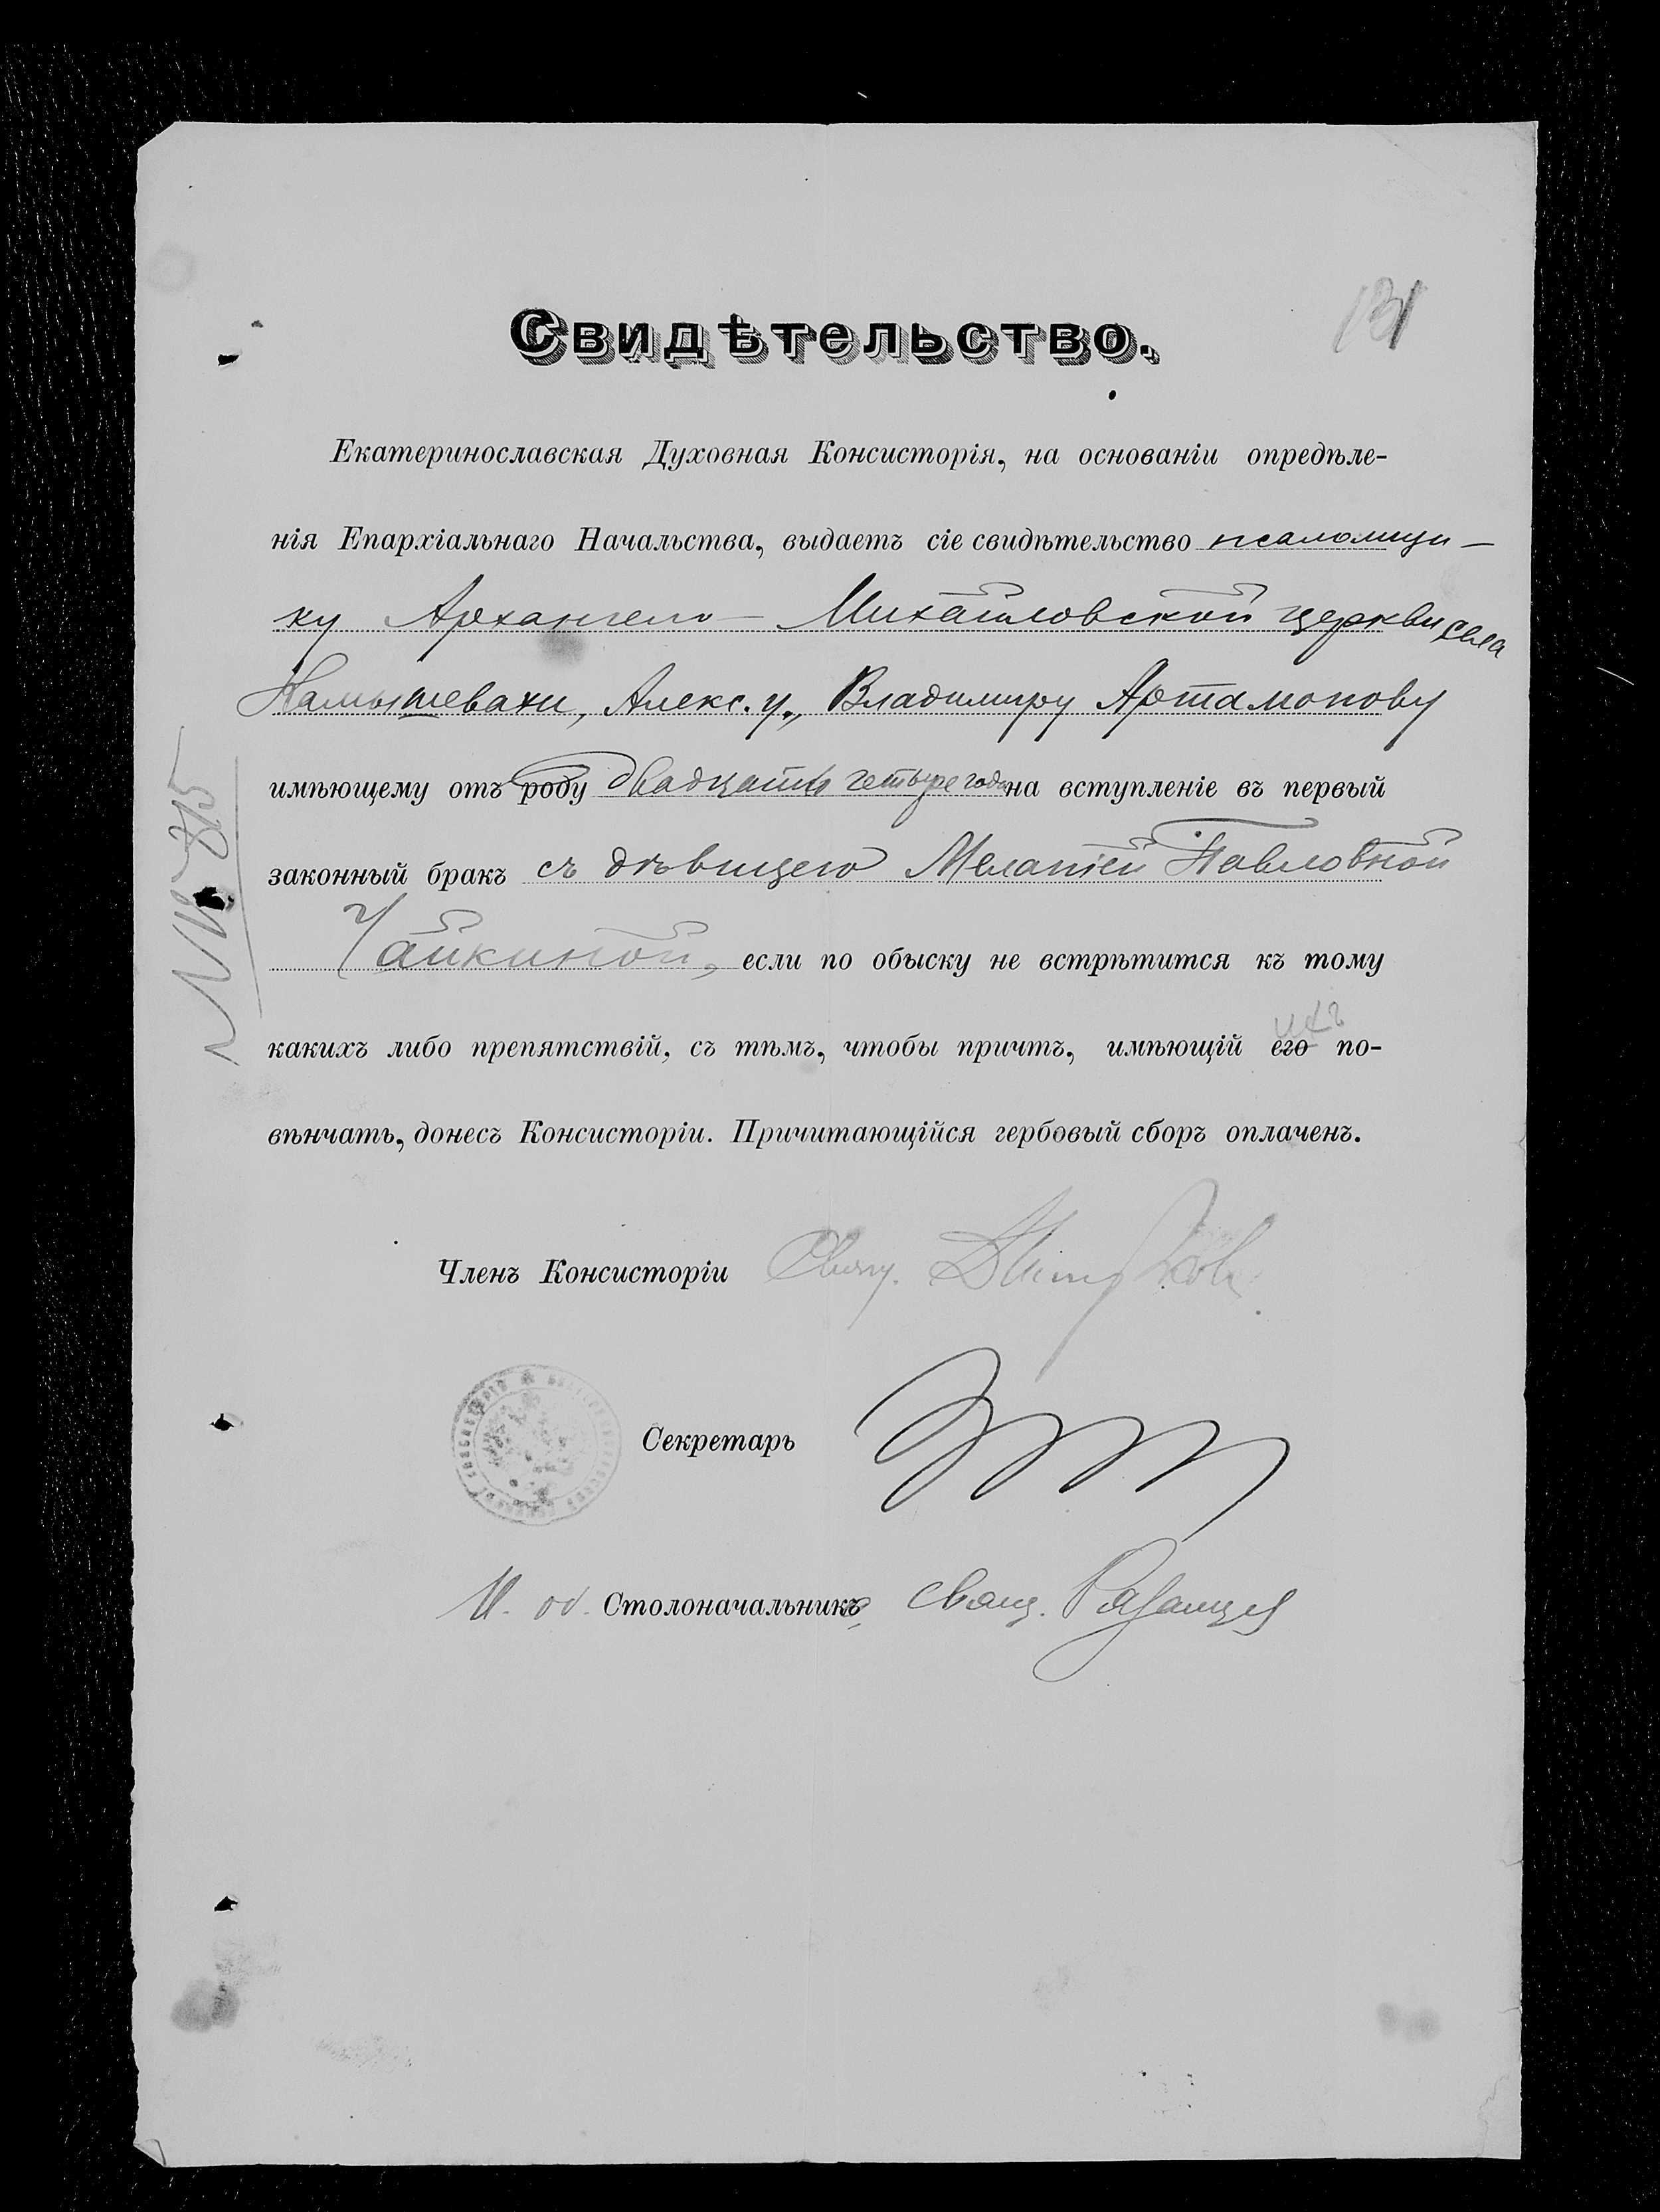 131
Свидѣтельство.
Екатеринославская Духовная Консисторія, на основаніи опредѣле-
нія Епархіальнаго Начальства, выдаетъ сіе свидѣтельство псаломщи-
ку Архангело-Михайловской церкви села
Камышевахи, Алекс. у., Владимиру Артамонову
имѣющему отъ роду двадцать четыре года на вступленіе въ первый
законный бракъ съ дѣвицею Меланіей Павловной
Чайкиной, если по обыску не встрѣтится къ тому
какихъ либо препятствій, съ тѣмъ, чтобы причтъ, имѣющій его ихъ по-
вѣнчать, донесъ Консисторіи. Причитающійся гербовый сборъ оплаченъ.
Членъ Консисторіи Свящ.
Секретарь
И. об. Столоначальника, свящ.
№ 815